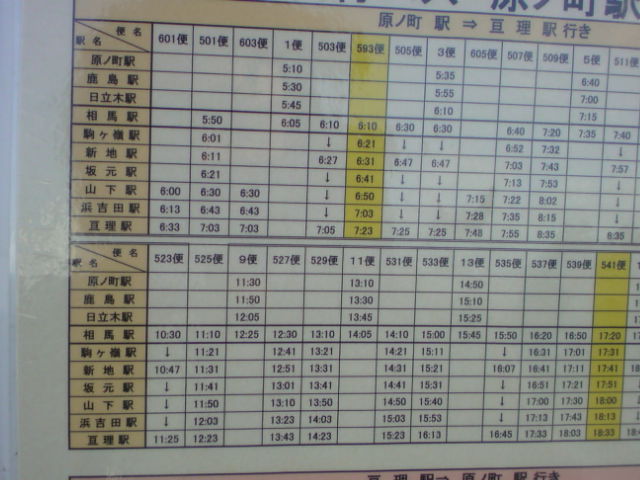 原ノ町駅
原ノ町 駅 ⇒ 亘 理 駅 行き
便 名 駅 名 601便 501便 603便 1便 503便 593便 505便 3便 605便 507便 509便 5便 511便
原ノ町駅 5:10
鹿 島 駅 5:30 5:35 6:40
日立木駅 5:45 5:55 7:00
相 馬 駅 5:50 6:05 6:10 6:10 6:30 6:10 7:15
駒ヶ嶺駅 6:01 ↓ 6:21 ↓ 6:30 6:40 7:20 7:35 7:40
新 地 駅 6:11 6:27 6:31 6:47 6:47 6:52 7:32 ↓
坂 元 駅 6:21 ↓ 6:41 ↓ ↓ 7:03 7:43 7:57
山 下 駅 6:00 6:30 6:30 ↓ 6:50 ↓ ↓ 7:15 7:13 7:53 ↓
浜吉田駅 6:13 6:43 6:43 ↓ 7:03 ↓ ↓ 7:28 7:22 8:02 ↓
亘理駅 6:33 7:03 7:03 7:05 7:23 7:25 7:25 7:48 7:35 8:15 ↓
7:55 8:35 8:35
便 名 駅 名 523便 525便 9便 527便 529便 11便 531便 533便 13便 535便 537便 539便 541便
原ノ町駅 11:30 13:10 14:50
鹿 島 駅 11:50 13:30 15:10
日立木駅 12:05 13:45 15:25
相 馬 駅 10:30 11:10 12:25 12:30 13:10 14:05 14:10 15:00 15:45 15:50 16:20 16:50 17:20
駒ヶ嶺駅 ↓ 11:21 12:41 13:21 14:21 15:11 ↓ 16:31 17:01 17:31
新 地 駅 10:47 11:31 12:51 13:31 14:31 15:21 16:07 16:41 17:11 17:41
坂 元 駅 ↓ 11:41 13:01 13:41 14:41 15:31 ↓ 16:51 17:21 17:51
山 下 駅 ↓ 11:50 13:10 13:50 14:50 15:40 ↓ 17:00 17:30 18:00
浜吉田駅 ↓ 12:03 13:23 14:03 15:03 15:53 ↓ 17:13 17:43 18:13
亘理駅 11:25 12:23 13:43 14:23 15:23 16:13 16:45 17:33 18:03 18:33
亘 理 駅 ⇒ 原ノ町 駅 行き